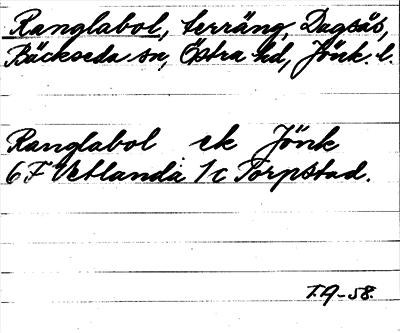 Ranglabol, terräng, Dagsås,
Bäckseda sn, Östra hd, Jönk. l.
Ranglabol ek Jönk
6F Vetlanda 1c Torpstad.
T.A-58.